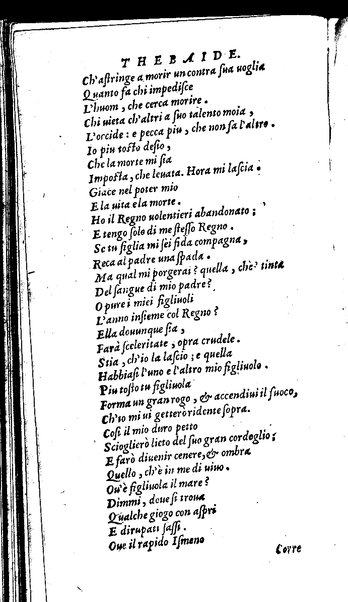 THEBAIDE.
Ch'astringe a morir un contra sua uoglia
Quanto fa chi impedisce
L'huom, che cerca morire.
Chi uieta ch'altri a suo talento moia,
L'occide: e pecca piu, che non fa l'altro.
Io piu tosto desio,
Che la morte mi sia
Imposta, che leuata. Hora mi lascia.
Giace nel poter mio
E la uita e la morte.
Ho il Regno uolentieri abandonato;
E tengo solo di me stesso Regno.
Se tu figlia mi sei fida compagna,
Reca al padre una spada.
Ma qual mi porgerai? quella, che' tinta
Del sangue di mio padre?
O pure i miei figliuoli
L'anno insieme col Regno?
Ella douunque sia,
Farà sceleritate, opra crudele.
Stia, ch'io la lascio; e quella
Habbiasi l'uno e l'altro mio figliuolo.
Piu tosto tu figliuola
Forma un gran rogo, & accendiui il fuoco,
Ch'io mi ui getterò ridente sopra.
Cosi il mio duro petto
Scioglierò lieto del suo gran cordoglio;
E farò diuenir cenere, & ombra
Quello, ch'è in me di uiuo.
Ou'è figliuola il mare?
Dimmi, doue si troua
Qualche giogo con aspri
E dirupati sassi.
Oue il rapido Ismeno
Corre